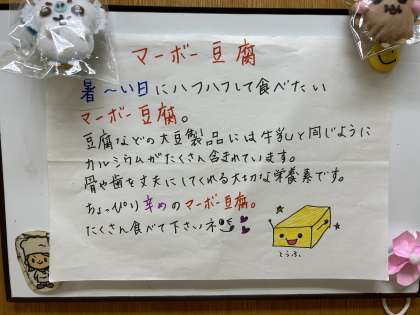 マーボー豆腐
暑～い日にハフハフして食べたい
マーボー豆腐。
豆腐などの大豆製品には牛乳と同じように
カルシウムがたくさん含まれています。
骨や歯を丈夫にしてくれる大切な栄養素です。
ちょっぴり辛めのマーボー豆腐。
たくさん食べて下さいネ
とうふ